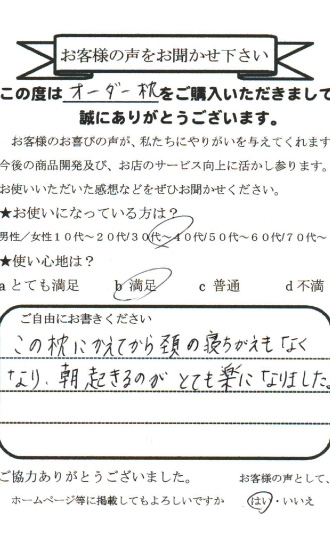 お客様の声をお聞かせ下さい
この度は オーダー枕 をご購入いただきまして
誠にありがとうございます。
お客様のお喜びの声が、私たちにやりがいを与えてくれます
今後の商品開発及び、お店のサービス向上に活かし参ります。
お使いいただいた感想などをぜひお聞かせください。
★お使いになっている方は？
男性／女性１０代〜２０代/３０代〜４０代/５０代〜６０代/７０代〜
★使い心地は？
a とても満足 b 満足 c 普通 d 不満
ご自由にお書きください
この枕にかえてから頚の寝ちがえもなく
なり、朝起きるのがとても楽になりました。
ご協力ありがとうございました。 お客様の声として、
ホームページ等に掲載してもよろしいですか はい・いいえ